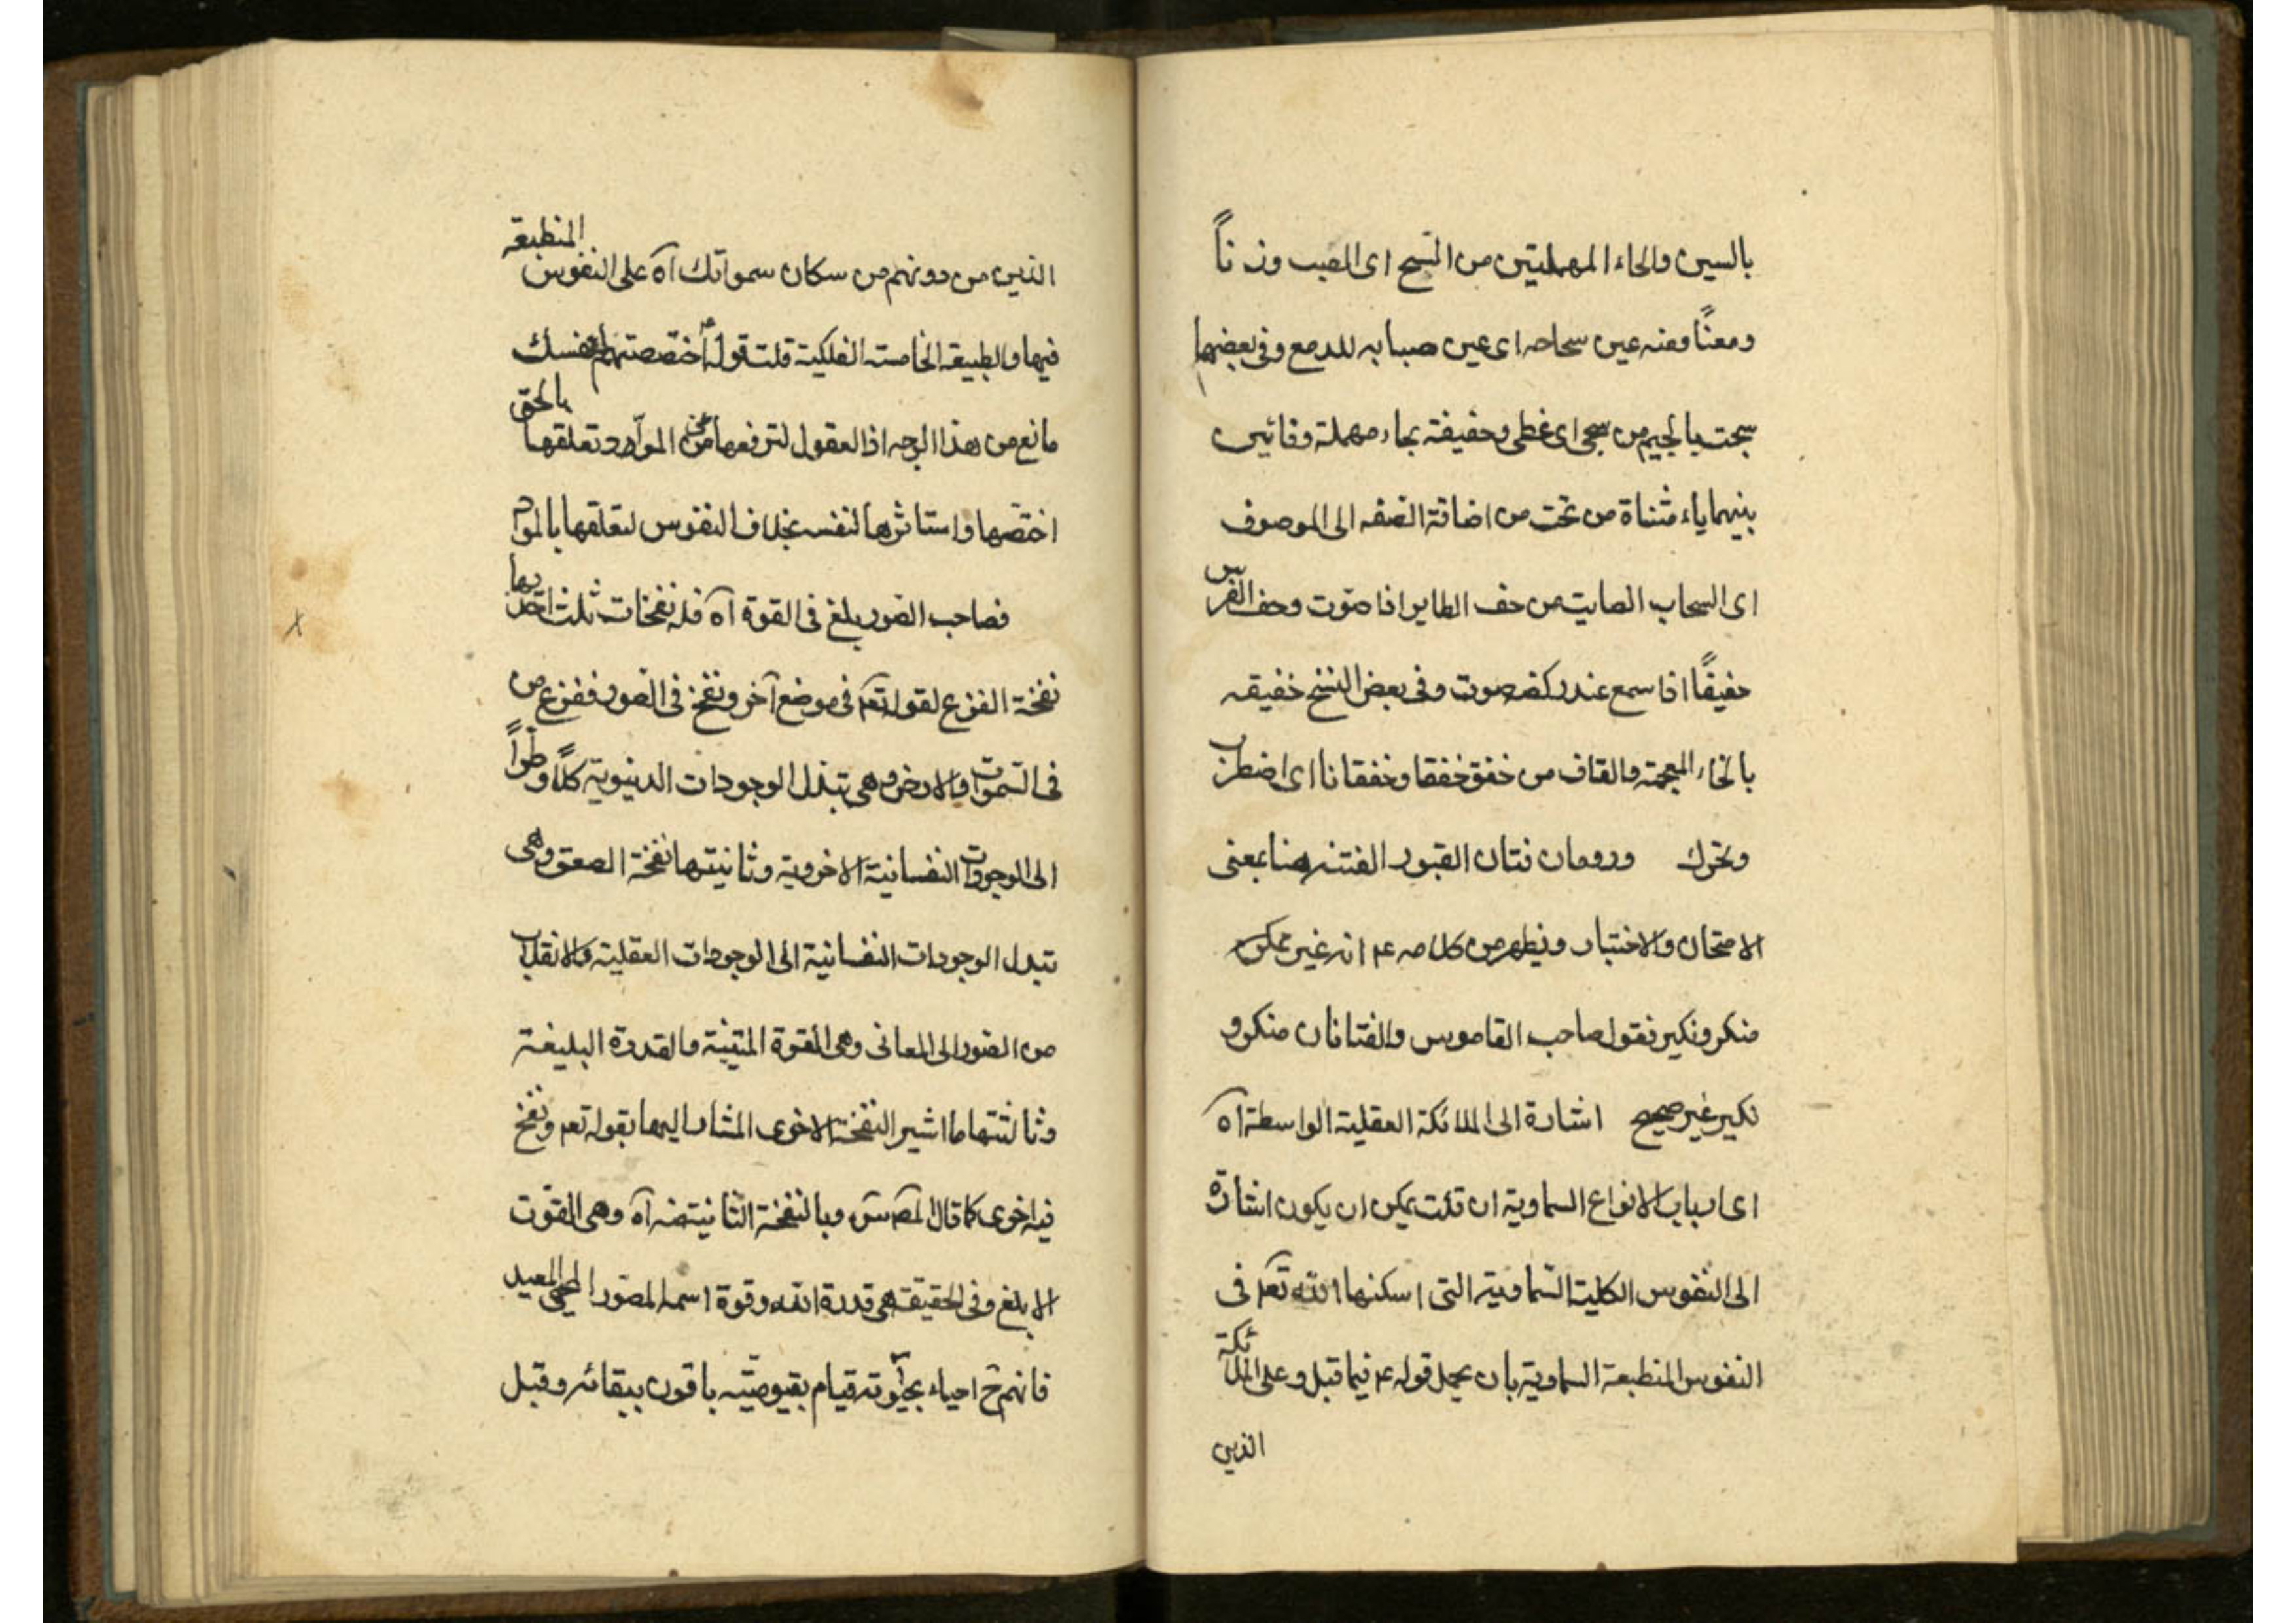 بالسين والحاء المهملتين من السح اى الصب وزناً
ومعنًا ومنه عين سحاحه اى عين صبابه للدمع وفى بعضها
سجت بالجيم من سجى اى غطى وحفيفة بحاء مهملة وفائين
بينهما ياء مثناة من تحت من اضافة الصفه الى الموصوف
اى السحاب الصايت من حف الطاير اذا صوّت وحف الفرس
حفيفًا اذا سمع عند ركضه صوت وفى بعض النسخ خفيقه
بالخاء المعجمة والقاف من خفق خفقا وخفقانا اى اضطرب
وتحرك ورومان فتان القبور الفتنه هنا بمعنى
الامتحان والاختبار ويظهر من كلامه ع انه غير
منكر ونكير فقول صاحب القاموس والفتانان منكر و
نكير غير صحيح اشارة الى الملائكة العقلية الواسطة آه
اى ارباب الانواع السماوية ان قلت يمكن ان يكون اشارة
الى النفوس الكلية السّماوية التى اسكنها الله تعم فى
النفوس المنطبعة السماوية بان يحمل قوله ع فيما قبل وعلى الملائكة
الذين
الذين من دونهم من سكان سمواتك آه على النفوس المنطبعة
فيها والطبيعه الخامسة الفلكية قلت قوله ع اختصصتهم لنفسك
مانع من هذا الوجه اذ العقول لترفعها عن المواد وتعلقها بالحق
اختصّها واستاثرها لنفسه بخلاف النفوس لتعلقها بالمواد
فصاحب الصور بلغ فى القوة آه فله نفخات ثلث احديها
نفخة الفزع لقوله تعم فى موضع آخر ونفخ فى الصور ففزع من
فى السّموات والارض وهى تبدل الوجودات الدنيوية كلًّا وطراً
الى الوجودات النفسانية الاخروية وثانيتها نفخة الصعق وهى
تبدل الوجودات النفسانية الى الوجودات العقلية والانقلاب
من الصّور الى المعانى وهى القوة المتينة والقدرة البليغة
وثالثتها ما اشير النفخة الاخرى المشار اليها بقوله تعم ونفخ
فيه اخرى كما قال المص س وبالنفخة الثانية آه وهى القوّت
الابلغ وفى الحقيقة هى قدرة الله وقوة اسمه المصوّر المحيى المعيد
فانهم ح احياء بحيوته قيام بقيوميّته باقون ببقائه وقبل